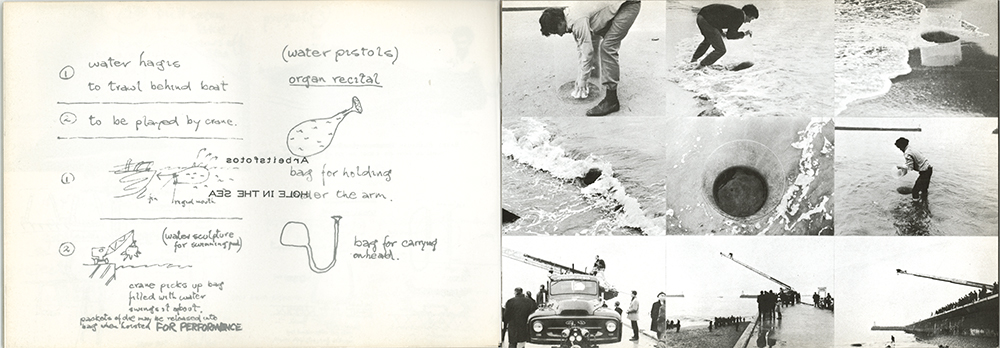 ① water hagis
to trawl behind boat
② to be played by crane.
①
fin rigid mouth
② (water sculpture
for swimming pool)
crane picks up bag
filled with water
swings it about.
packets of dye may be released into
bag when hoisted FOR PERFORMANCE
(water pistols)
organ recital
Arbeitsfotos
bag for holding
HOLE IN THE SEA
under the arm.
bag for carrying
on head.